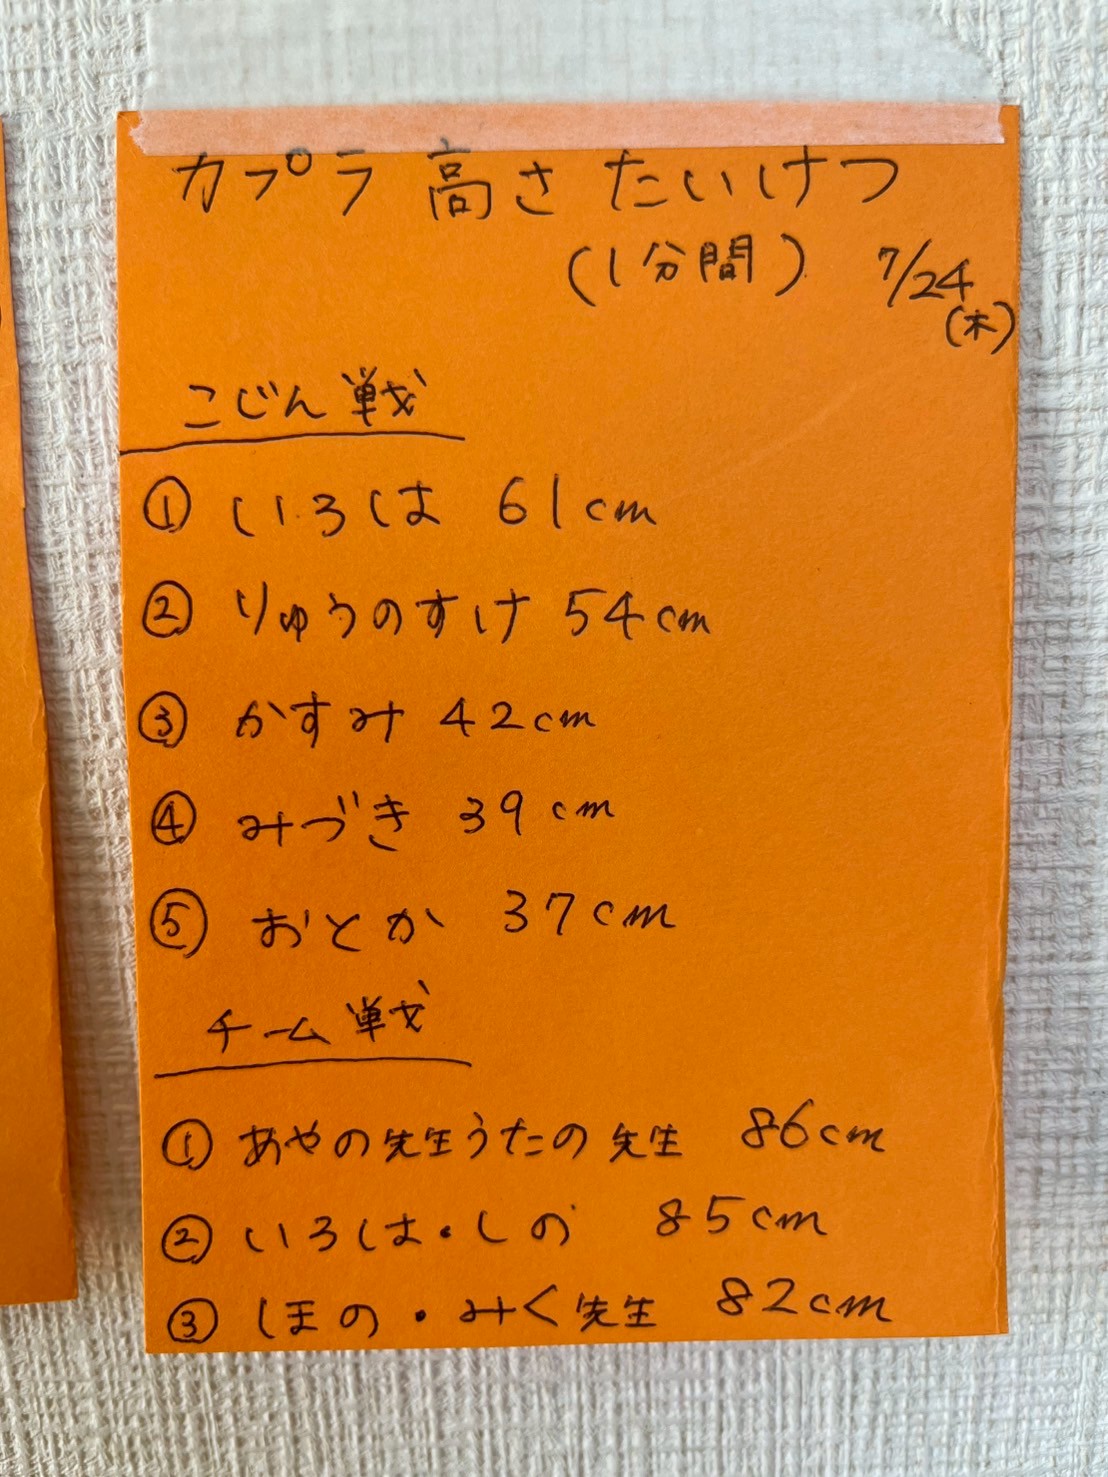 カプラ 高さ たいけつ
(1分間) 7/24
(木)
こじん戦
① いろは 61cm
② りゅうのすけ 54cm
③ かすみ 42cm
④ みづき 39cm
⑤ おとか 37cm
チーム戦
① あやの先生うたの先生 86cm
② いろは・しの 85cm
③ ほの・みく先生 82cm